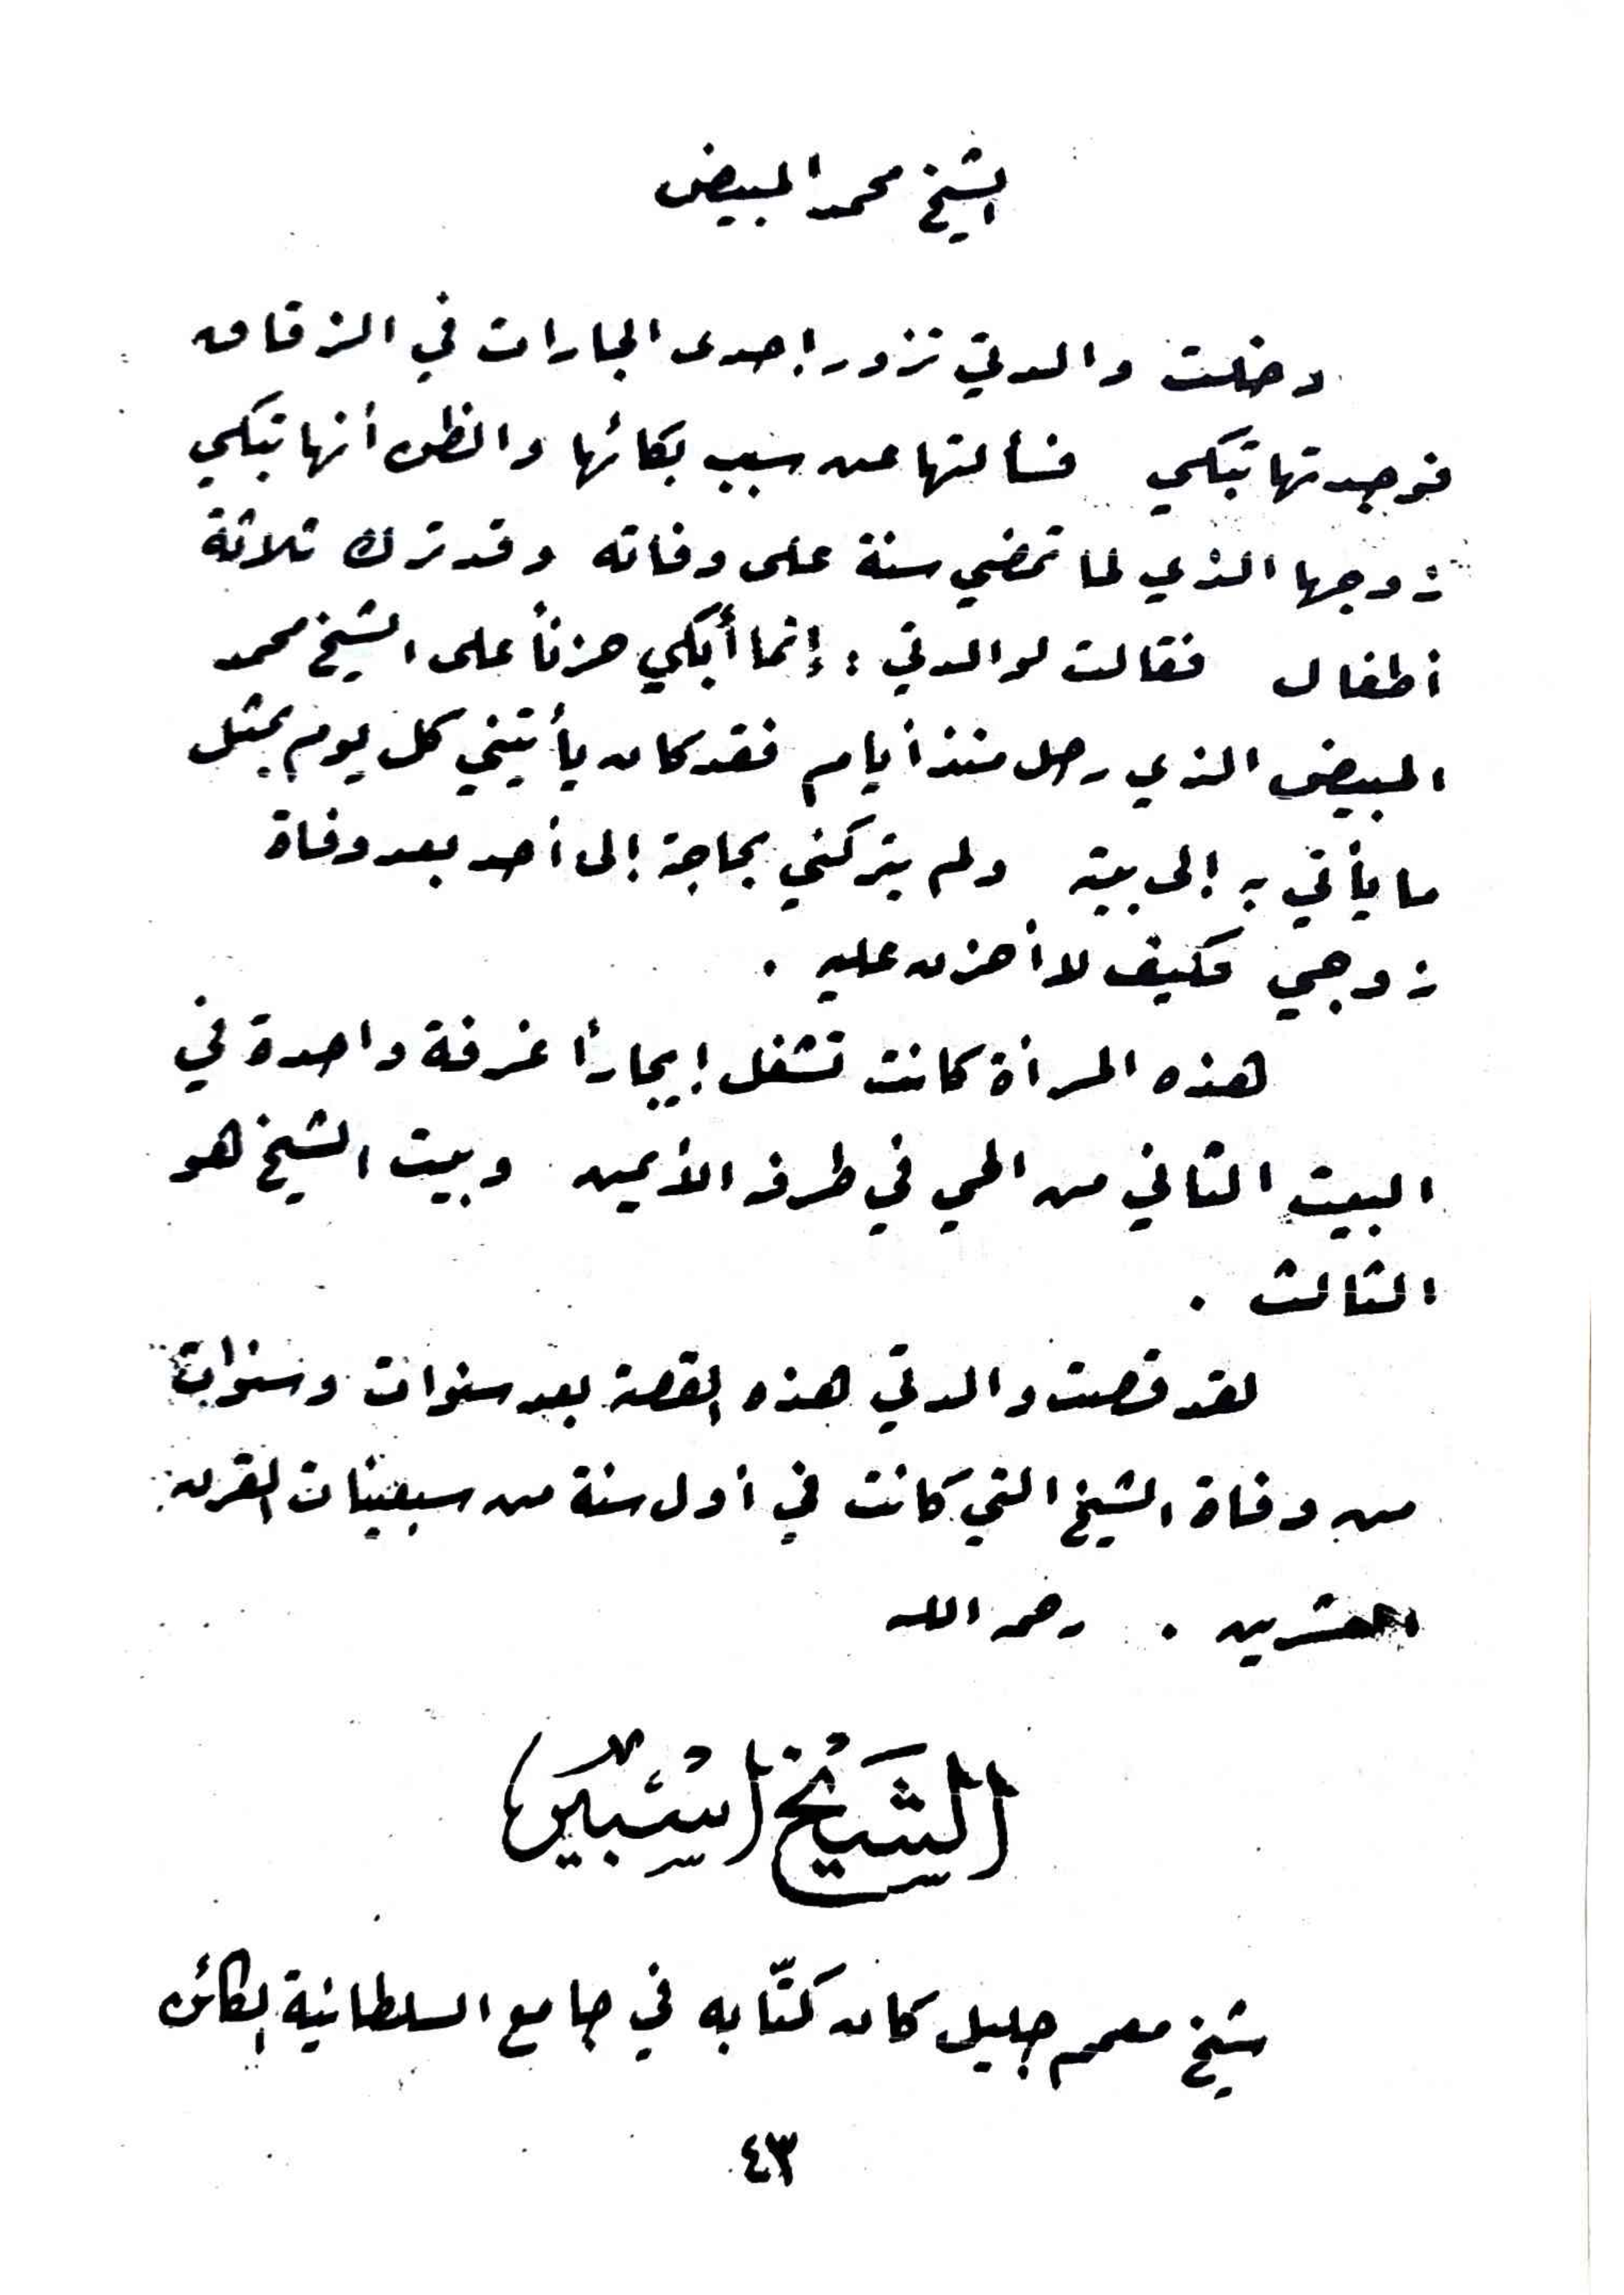 الشيخ محمد المبيض
دخلت والدتي تزور إحدى الجارات في الزقاق
فوجدتها تبكي فسألتها عن سبب بكائها والظن أنها تبكي
زوجها الذي لما تمضي سنة على وفاته وقد ترك ثلاثة
أطفال فقالت لوالدتي : إنما أبكي حزناً على الشيخ محمد
المبيض الذي رحل منذ أيام فقد كان يأتيني كل يوم بمثل
ما يأتي به إلى بيته ولم يتركني بحاجة إلى أحد بعد وفاة
زوجي فكيف لا أحزن عليه .
هذه المرأة كانت تشغل إيجاراً غرفة واحدة في
البيت الثاني من الحي في طرفه الأيمن وبيت الشيخ هو
الثالث .
لقد قصت والدتي هذه القصة بعد سنوات وسنوات
من وفاة الشيخ التي كانت في أول سنة من سبعينات القرن
العشرين . رحمه الله
الشيخ
شيخ معمم جليل كان كتّابه في جامع السلطانية الكائن
٤٣